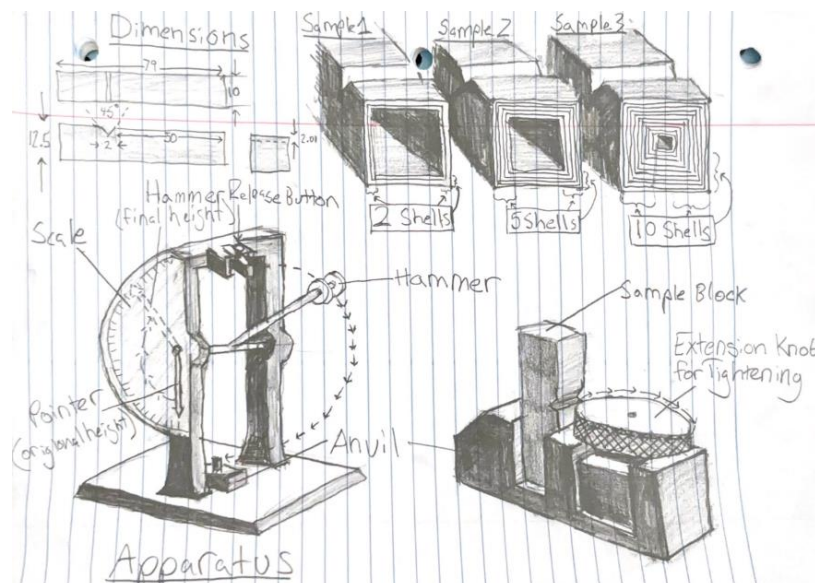 Dimensions
79
10
45°
12.5
50
2
2.01
Sample 1
Sample 2
Sample 3
2 Shells
5 Shells
10 Shells
Hammer Release Button
(final height)
Scale
Hammer
Pointer
(origional height)
Anvil
Apparatus
Sample Block
Extension Knob
for Tightening